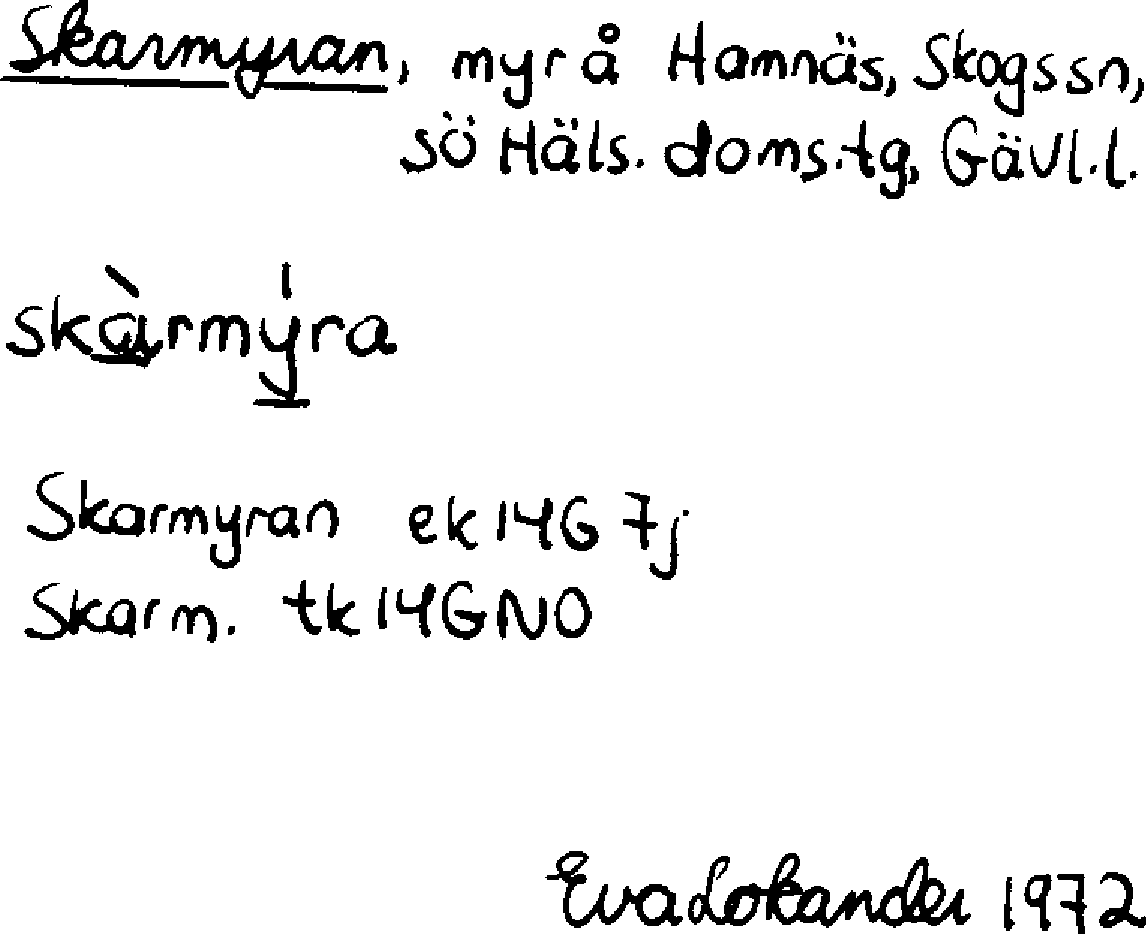 Skarmyran, myr å Hamnäs, Skogs sn,
sö Häls. doms.tg, Gävl.l.
skàrmýra
Skarmyran ek 14G 7j
Skarm. tk 14GNO
Eva Lokander 1972